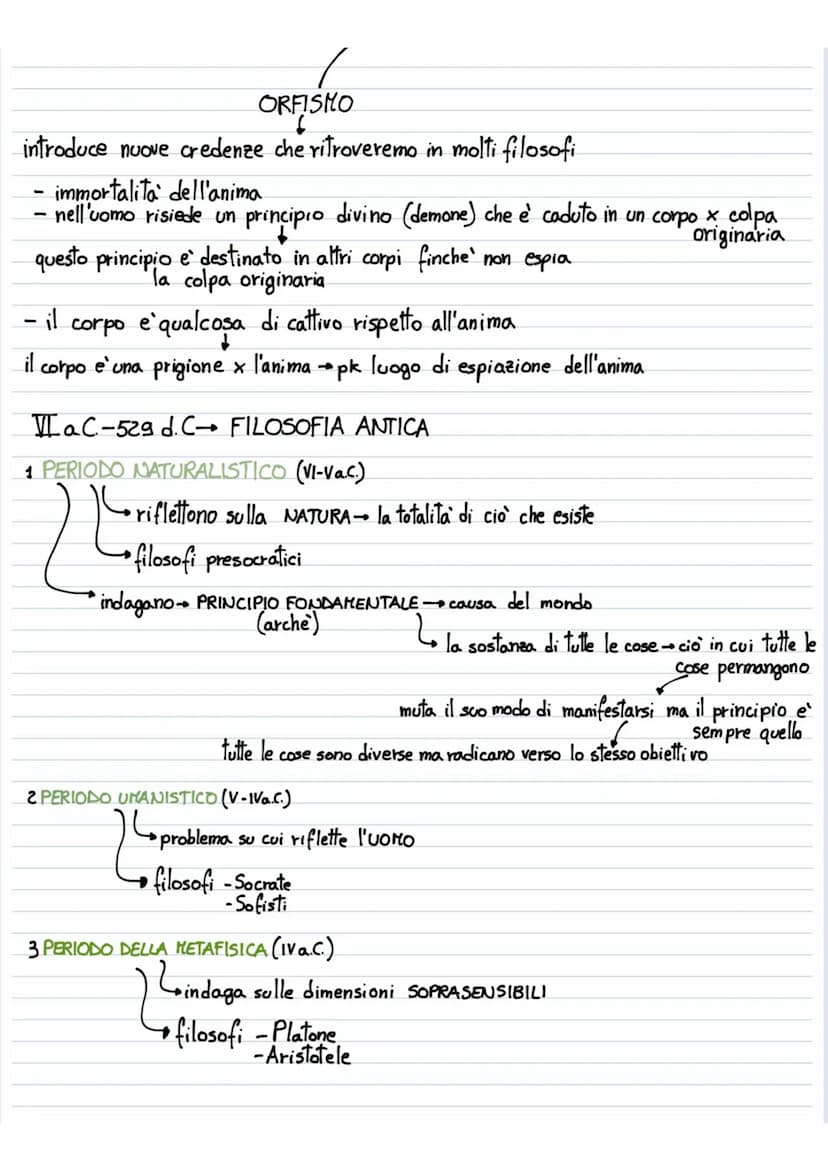 ORFISMO
introduce nuove credenze che ritroveremo in molti filosofi
- immortalita' dell'anima
- nell'uomo risiede un principio divino (demone) che e' caduto in un corpo x colpa
originaria
questo principio e' destinato in altri corpi finche' non espia
la colpa originaria
- il corpo e' qualcosa di cattivo rispetto all'anima
il corpo e' una prigione x l'anima → pk luogo di espiazione dell'anima
VI a.C.-529 d.C → FILOSOFIA ANTICA
1 PERIODO NATURALISTICO (VI-V a.C.)
riflettono sulla NATURA → la totalita' di cio' che esiste
filosofi presocratici
indagano → PRINCIPIO FONDAMENTALE → causa del mondo
(archè)
la sostanza di tutte le cose → cio' in cui tutte le
cose permangono
muta il suo modo di manifestarsi ma il principio e'
sempre quello
tutte le cose sono diverse ma radicano verso lo stesso obiettivo
2 PERIODO UMANISTICO (V-IV a.C.)
problema su cui riflette l'UOMO
filosofi - Socrate
- Sofisti
3 PERIODO DELLA METAFISICA (IV a.C.)
indaga sulle dimensioni SOPRASENSIBILI
filosofi - Platone
- Aristotele